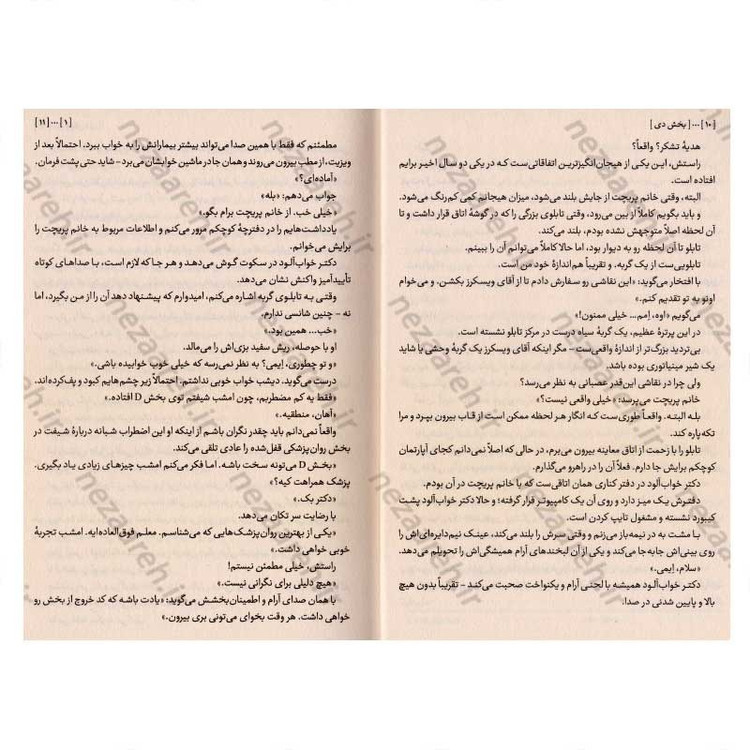 [ ۱۰ ] ... [ بخش دی ]
هدیهٔ تشکر؟ واقعاً؟
راستش، این یکی از هیجان‌انگیزترین اتفاقاتی‌ست که در یکی دو سال اخیر برایم
افتاده است.
البته، وقتی خانم پریچت از جایش بلند می‌شود، میزان هیجانم کمی کم‌رنگ می‌شود.
و باید بگویم کاملاً از بین می‌رود، وقتی تابلوی بزرگی را که در گوشهٔ اتاق قرار داشت و تا
آن لحظه اصلاً متوجهش نشده بودم، بلند می‌کند.
تابلو تا آن لحظه رو به دیوار بود، اما حالا کاملاً می‌توانم آن را ببینم.
تابلویی‌ست از یک گربه. و تقریباً هم‌اندازهٔ خود من است.
با افتخار می‌گوید: «این نقاشی رو سفارش دادم تا از آقای ویسکرز بکشن. و می‌خوام
اونو به تو تقدیم کنم.»
می‌گویم «اوه، اِمم... خیلی ممنون!»
در این پرترهٔ عظیم، یک گربهٔ سیاه درست در مرکز تابلو نشسته است.
بی‌تردید بزرگ‌تر از اندازهٔ واقعی‌ست – مگر اینکه آقای ویسکرز یک گربهٔ وحشی یا شاید
یک شیر مینیاتوری بوده باشد.
ولی چرا در نقاشی این‌قدر عصبانی به نظر می‌رسد؟
خانم پریچت می‌پرسد: «خیلی واقعی نیست؟»
بله البته. واقعاً طوری‌ست که انگار هر لحظه ممکن است از قاب بیرون بپرد و مرا
تکه‌پاره کند.
تابلو را با زحمت از اتاق معاینه بیرون می‌برم، در حالی که اصلاً نمی‌دانم کجای آپارتمان
کوچکم برایش جا دارم. فعلاً آن را در راهرو می‌گذارم.
دکتر خواب‌آلود در دفتر کناری همان اتاقی‌ست که با خانم پریچت در آن بودم.
دفترش یک میز دارد و روی آن یک کامپیوتر قرار گرفته؛ و حالا دکتر خواب‌آلود پشت
کیبورد نشسته و مشغول تایپ کردن است.
با مشت به در نیمه‌باز می‌زنم و وقتی سرش را بلند می‌کند، عینک نیم‌دایره‌ای‌اش را
روی بینی‌اش جابه‌جا می‌کند و یکی از آن لبخندهای آرام همیشگی‌اش را تحویلم می‌دهد.
«سلام، اِیمی.»
دکتر خواب‌آلود همیشه با لحنی آرام و یکنواخت صحبت می‌کند – تقریباً بدون هیچ
بالا و پایین شدنی در صدا.
[ ۱ ] ... [ ۱۱ ]
مطمئنم که فقط با همین صدا می‌تواند بیشتر بیمارانش را به خواب ببرد. احتمالاً بعد از
ویزیت، از مطب بیرون می‌روند و همان جا در ماشین خوابشان می‌برد – شاید حتی پشت فرمان.
«آماده‌ای؟»
جواب می‌دهم: «بله»
«خیلی خب. از خانم پریچت برام بگو.»
یادداشت‌هایم را در دفترچهٔ کوچکم مرور می‌کنم و اطلاعات مربوط به خانم پریچت را
برایش می‌خوانم.
دکتر خواب‌آلود در سکوت گوش می‌دهد و هر جا که لازم است، با صداهای کوتاه
تأییدآمیز واکنش نشان می‌دهد.
وقتی به تابلوی گربه اشاره می‌کنم، امیدوارم که پیشنهاد دهد آن را از من بگیرد، اما
نه – چنین شانسی ندارم.
«خب... همین بود.»
او با حوصله، ریش سفید بزی‌اش را می‌مالد.
«و تو چطوری، اِیمی؟ به نظر نمی‌رسه که خیلی خوب خوابیده باشی.»
درست می‌گوید. دیشب خواب خوبی نداشتم. احتمالاً زیر چشم‌هایم کبود و پف‌کرده‌اند.
«فقط یه کم مضطربم، چون امشب شیفتم توی بخش D افتاده.»
«آهان، منطقیه.»
واقعاً نمی‌دانم باید چقدر نگران باشم از اینکه او این اضطراب شبانه دربارهٔ شیفت در
بخش روان‌پزشکی قفل‌شده را عادی تلقی می‌کند.
«بخش D می‌تونه سخت باشه. اما فکر می‌کنم امشب چیزهای زیادی یاد بگیری.
پزشک همراهت کیه؟»
«دکتر بک.»
با رضایت سر تکان می‌دهد.
«یکی از بهترین روان‌پزشک‌هایی که می‌شناسم. معلم فوق‌العاده‌ایه. امشب تجربهٔ
خوبی خواهی داشت.»
راستش، خیلی مطمئن نیستم!
«هیچ دلیلی برای نگرانی نیست.»
با همان صدای آرام و اطمینان‌بخشش می‌گوید: «یادت باشه که کد خروج از بخش رو
خواهی داشت. هر وقت بخوای می‌تونی بری بیرون.»
nezaareh.ir